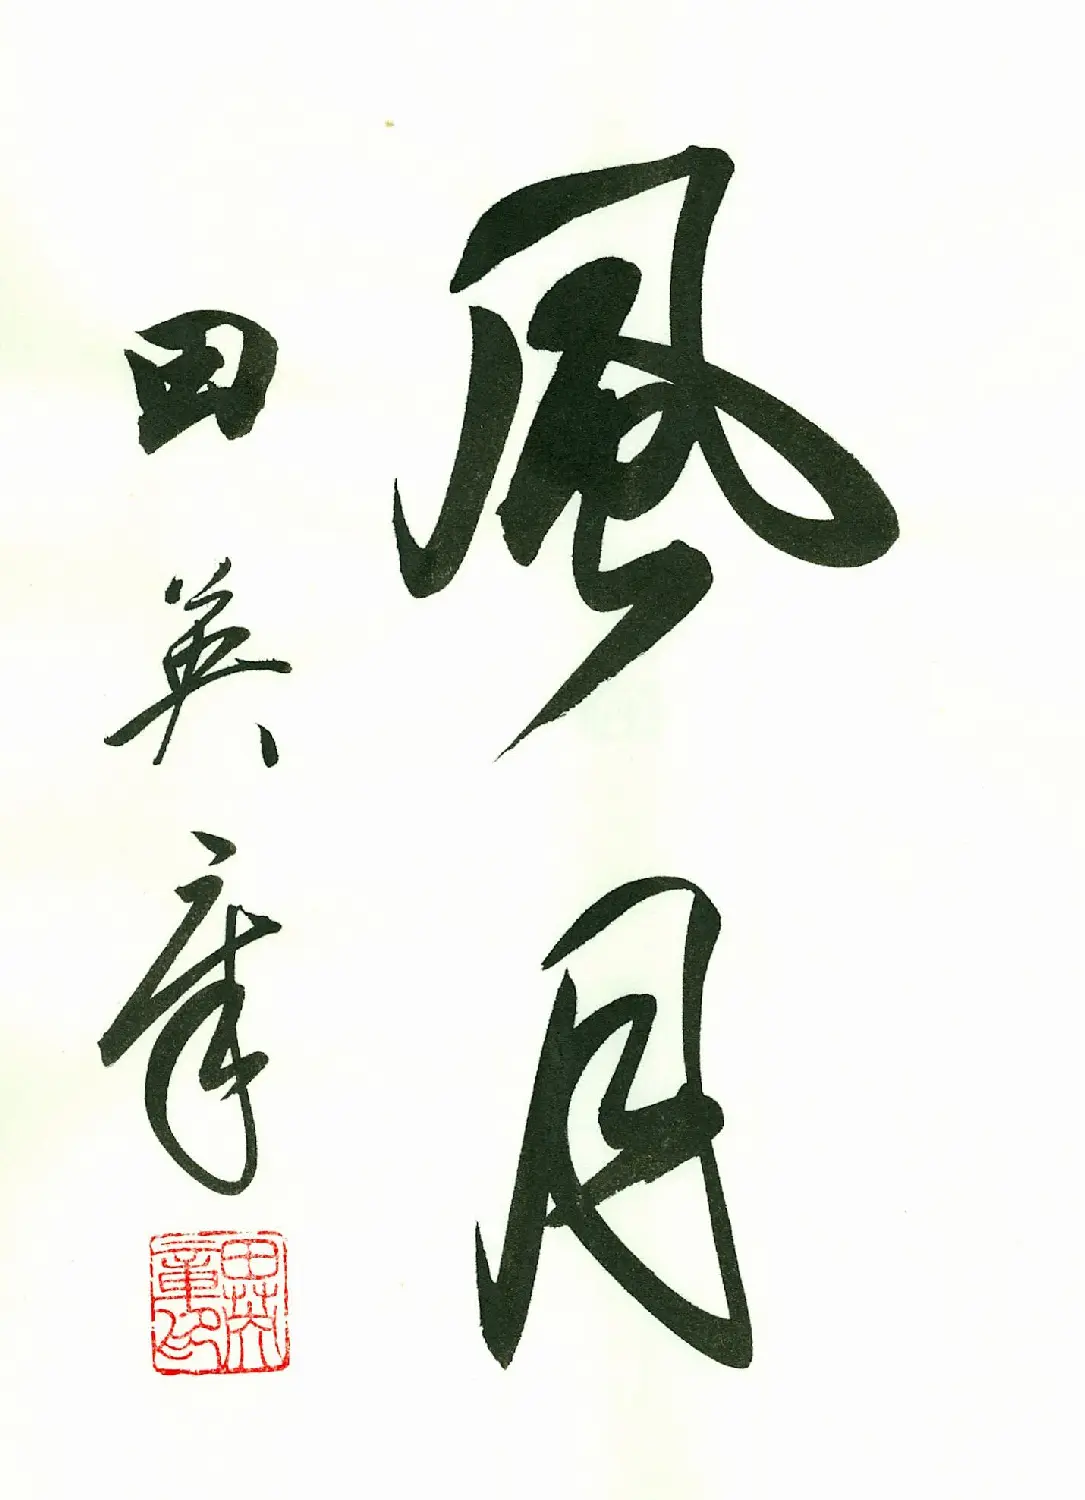 風月
田英章
田英章印